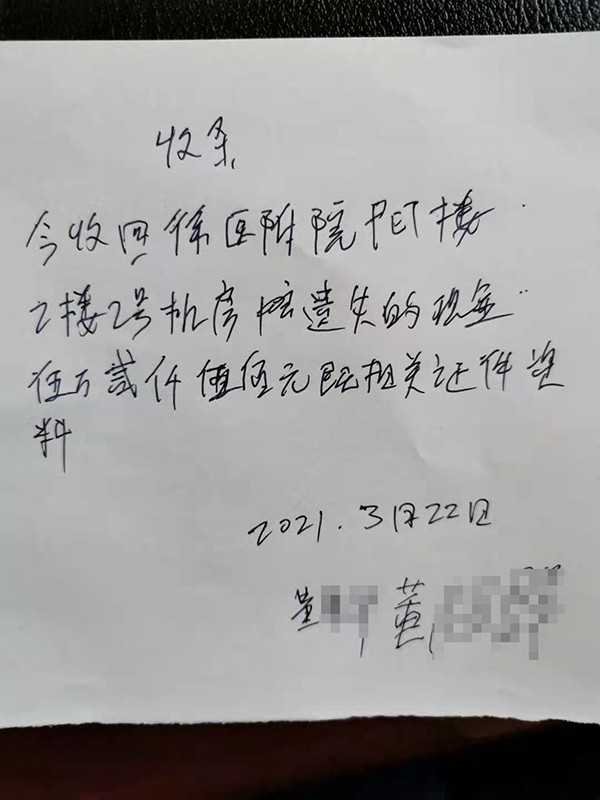 收条
今收回徐医附院PET楼
2楼2号机房遗失的现金
伍万贰仟元既相关证件资
料
2021.3月22日
董 董